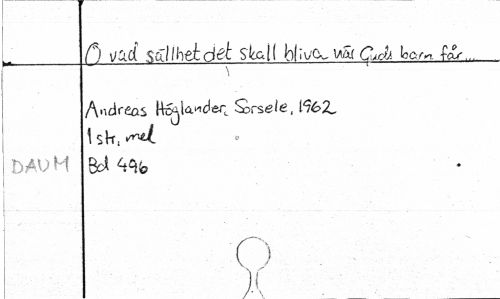 O vad sällhet det skall bliva när Guds barn får...
Andreas Höglander, Sorsele, 1962
1 str, mel
DAUM Bd 496